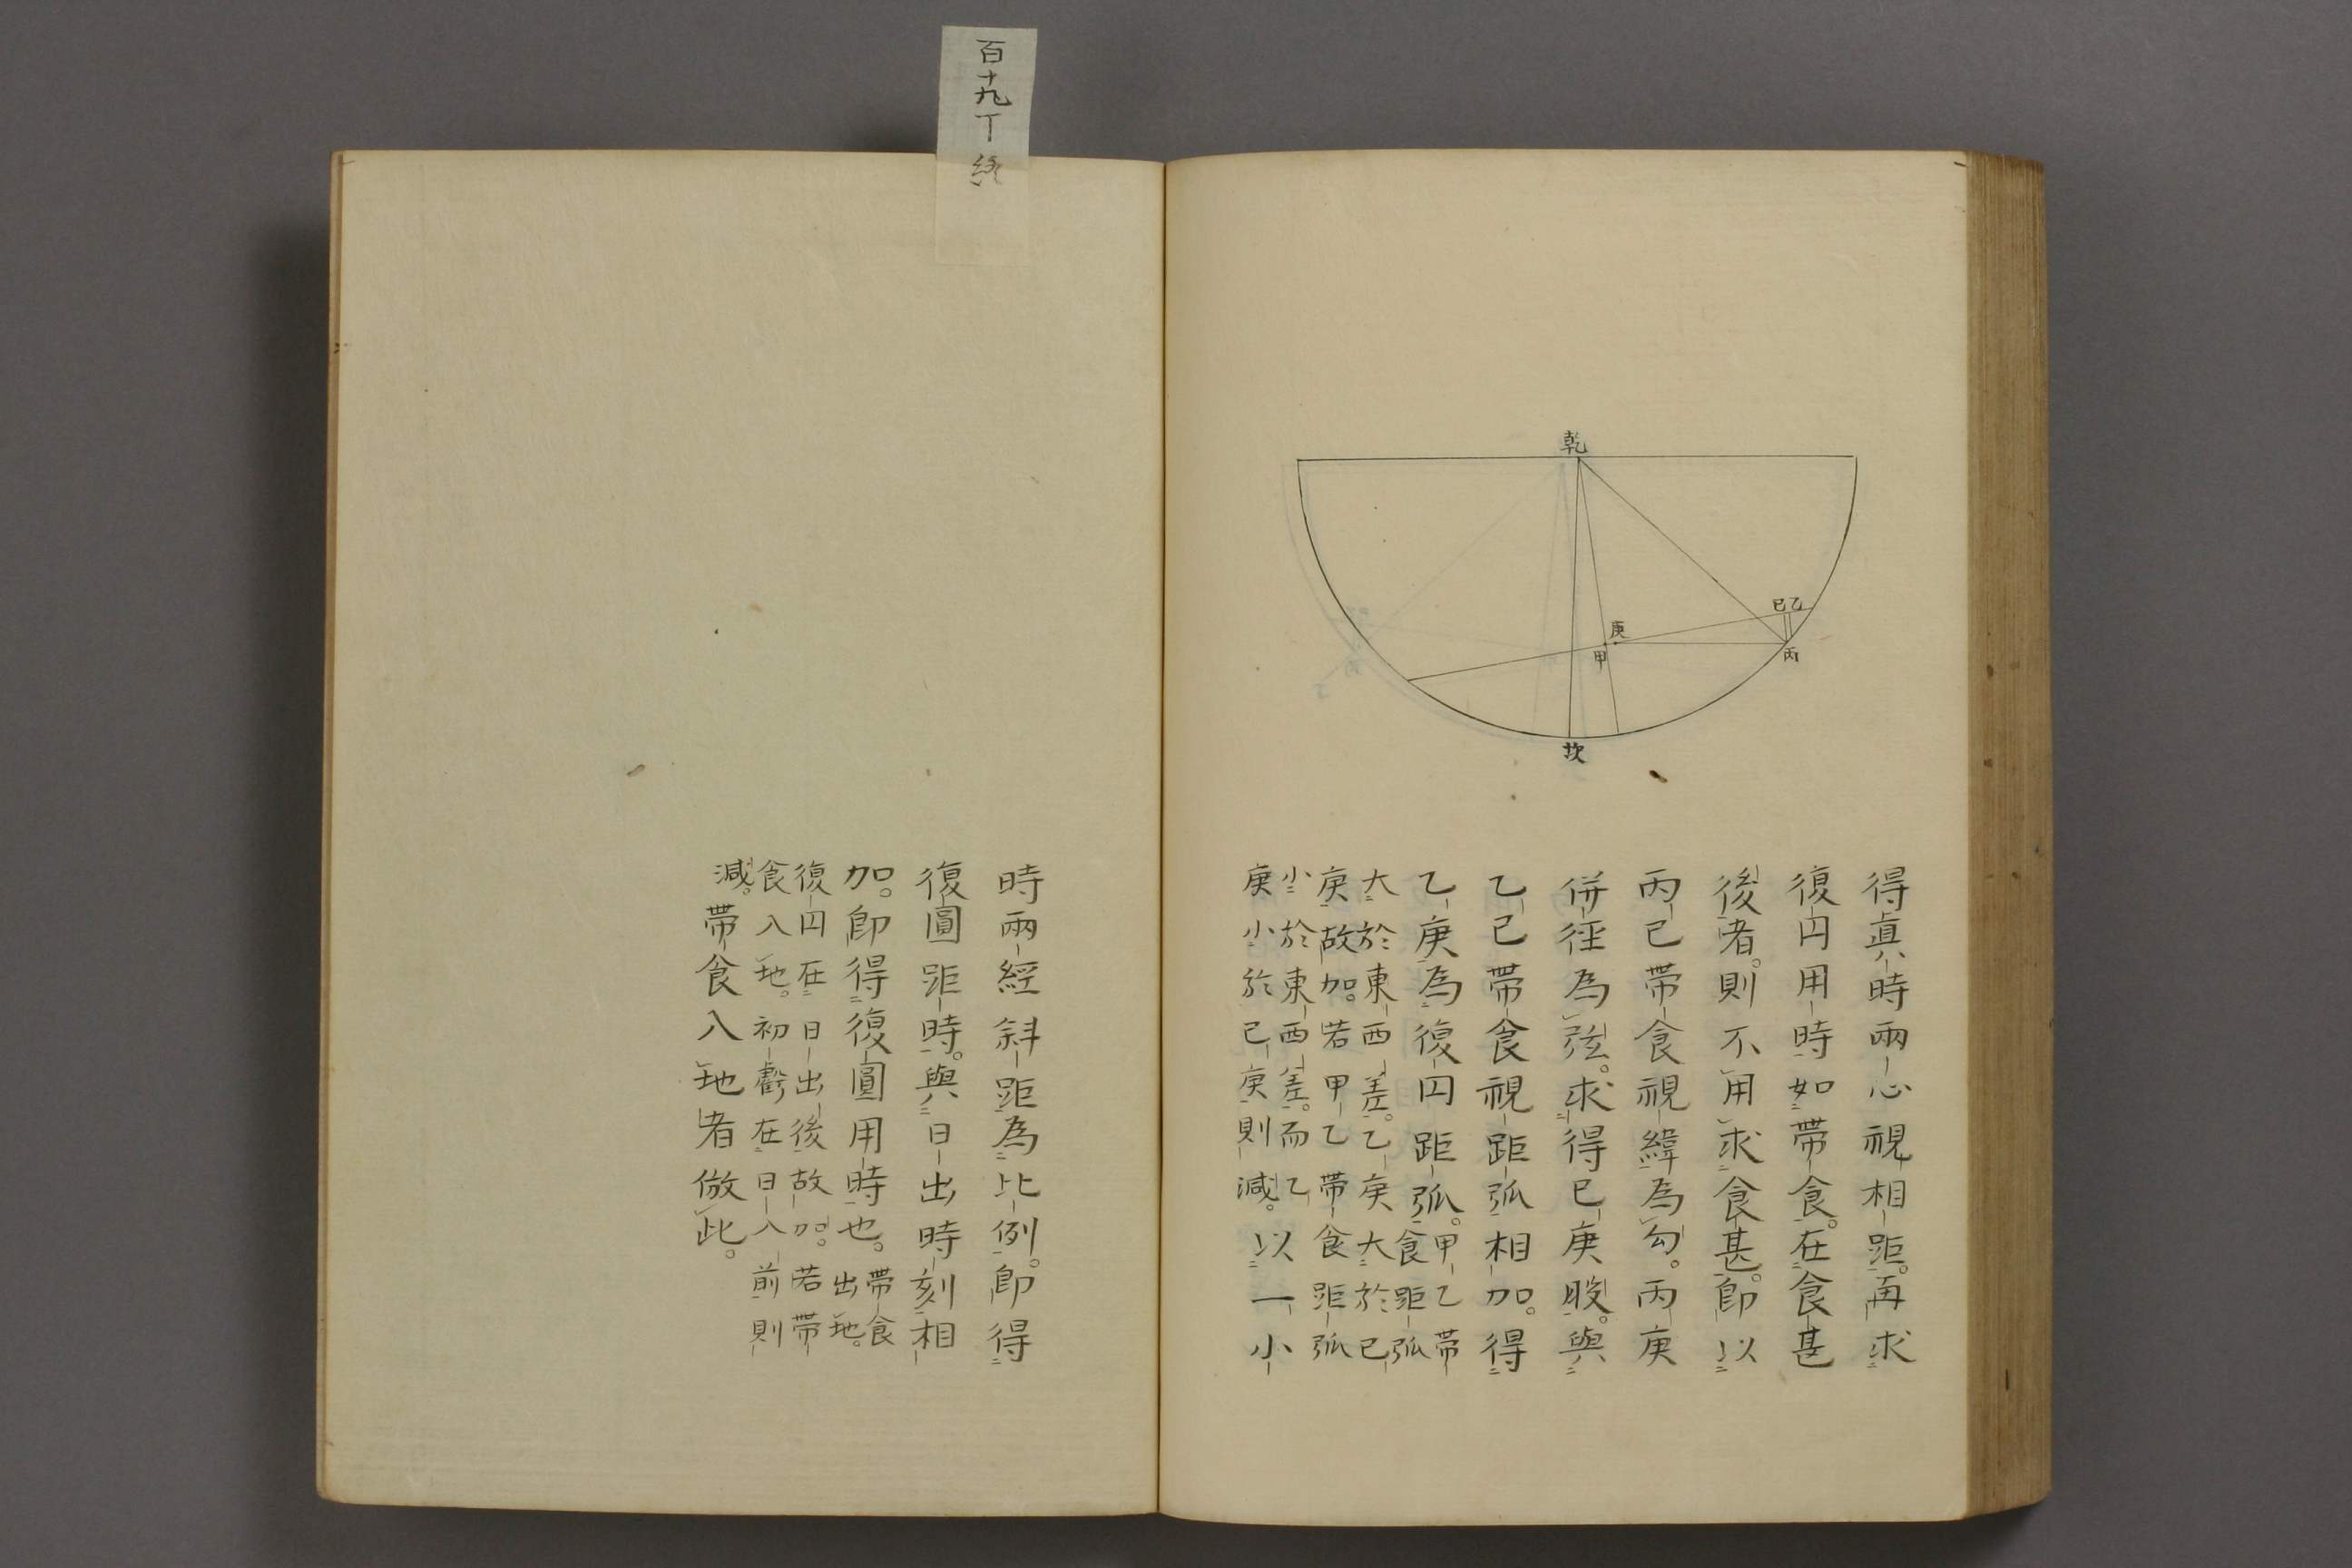 百十九丁終
乾
巳乙
庚
甲
丙
坎
得真時兩心視相距。再求
復円用時如帶食。在食甚
後者。則不用求食甚。即以
丙巳帶食視緯為勾。丙庚
併徑為弦。求得巳庚股。與
乙巳帶食視距弧相加。得
乙庚為復円距弧。甲乙帶
食距弧
大於東西差。乙庚大於巳
庚故加。若甲乙帶食距弧
小於東西差。而乙
庚小於巳庚則減。以一小
時兩經斜距為比例。即得
復圓距時。與日出時刻相
加。即得復圓用時也。帶食
出地。
復円在日出後故加。若帶
食入地。初虧在日入前則
減。帶食入地者倣此。